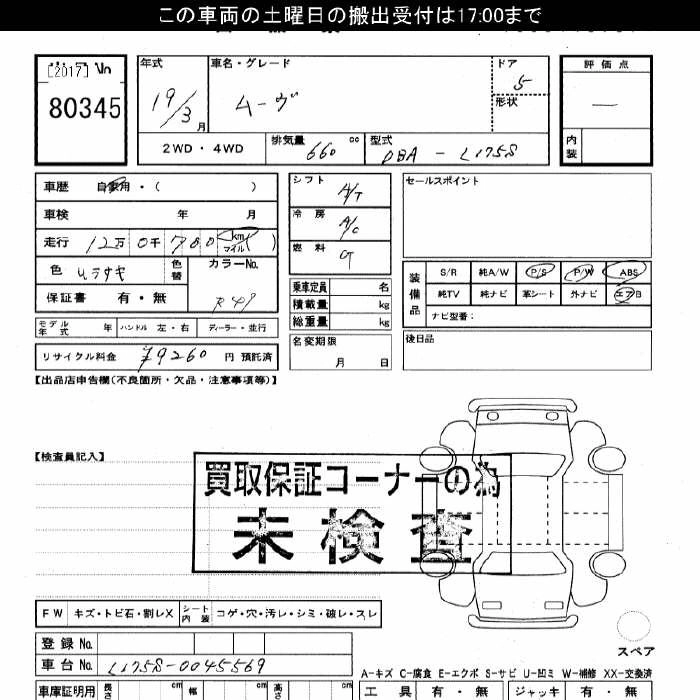 この車両の土曜日の搬出受付は17:00まで
[2017] No
80345
年式 19/3 月
車名・グレード ムーヴ
ドア 5
形状
評価点 —
内装
2WD・4WD
排気量 660 cc
型式 DBA - L175S
車歴 自家用・( )
車検 年 月
走行 12万 0千 780 km マイル ( )
色 ムラサキ 色替 カラーNo.
保証書 有・無
シフト A/T
冷房 A/C
燃料 G
乗車定員 名
積載量 kg
総重量 kg
名変期限 月 日
セールスポイント
装備品
S/R 純A/W P/S P/W ABS
純TV 純ナビ 革シート 外ナビ エアB
ナビ型番:
後日品
モデル年式 年 ハンドル 左・右 ディーラー・並行
リサイクル料金 ¥9260 円 預託済
【出品店申告欄(不良箇所・欠品・注意事項等)】
【検査員記入】
買取保証コーナーの為
未検査
FW キズ・トビ石・割レX シート内装 コゲ・穴・汚レ・シミ・破レ・スレ
登録 No.
車台 No. L175S-0045569
スペア
A-キズ C-腐食 E-エクボ S-サビ U-凹ミ W-補修 XX-交換済
車庫証明用 長さ cm 幅 cm 高さ cm
工具 有・無 ジャッキ 有・無